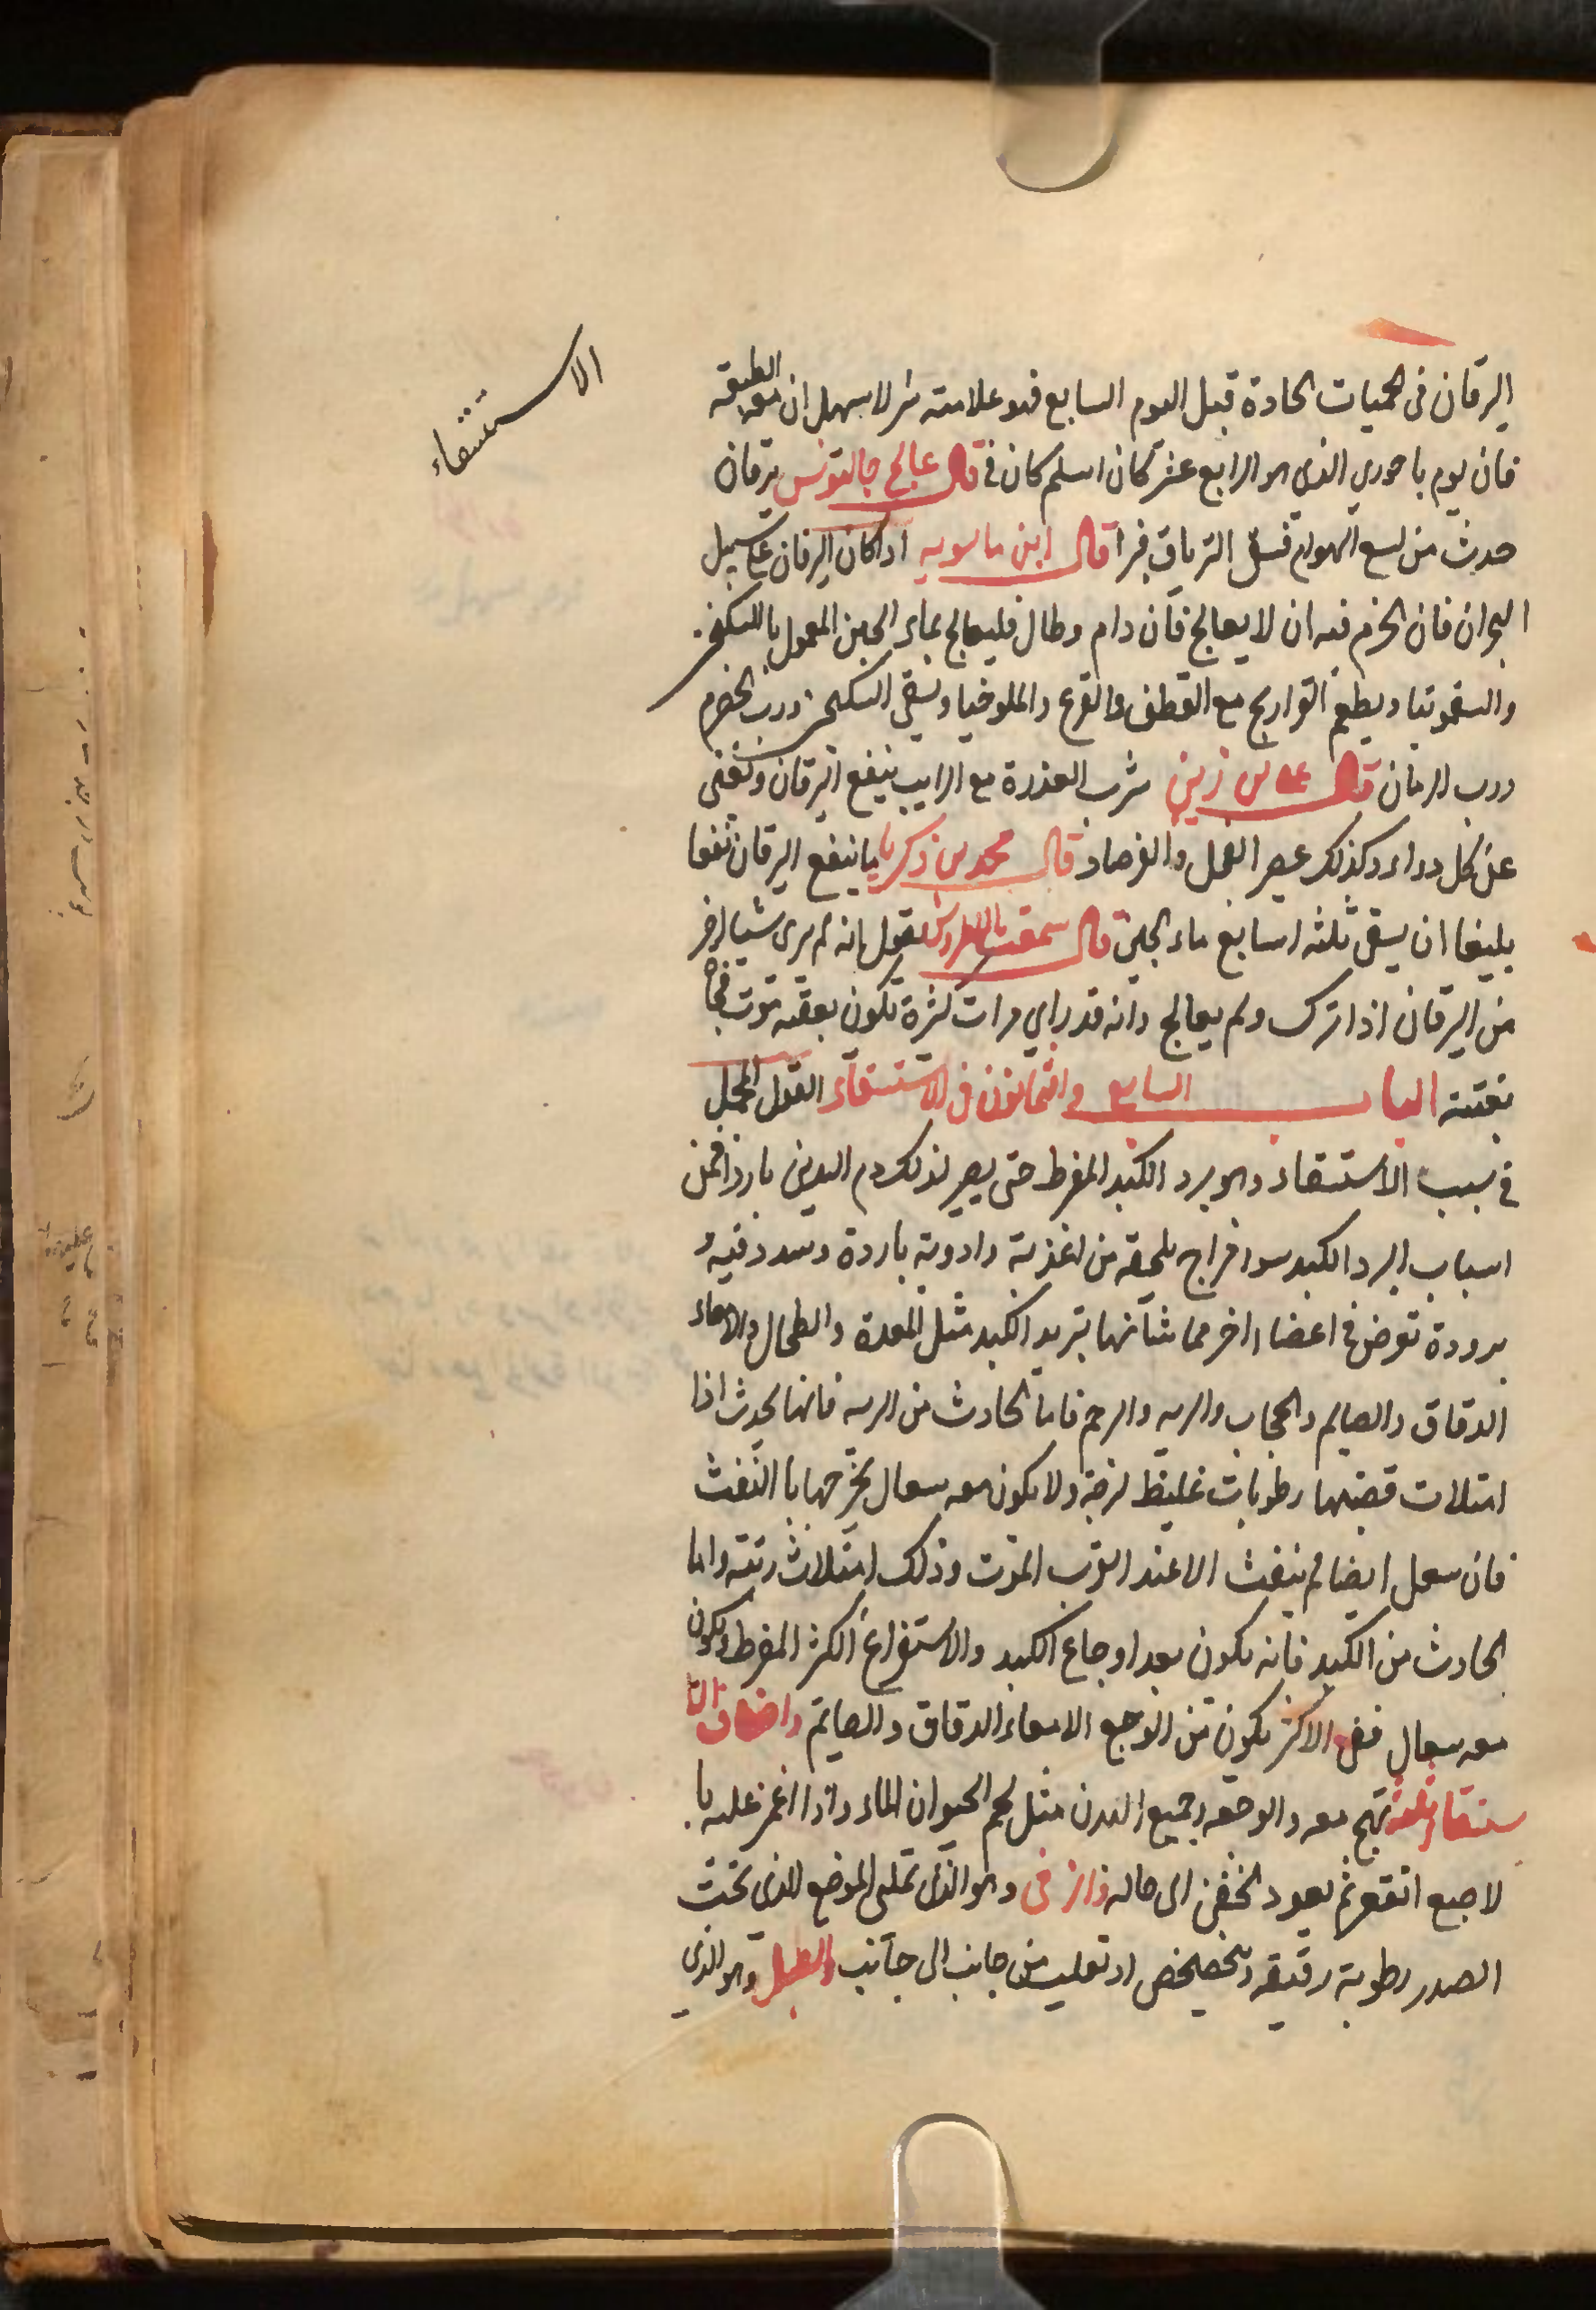 الاستسقاء
اليرقان فى الحميات الحادة قبل اليوم السابع فهو علامته شر لا سهل ان معه الطبيعة
فان يوم باحوري الذى هو الرابع عشر كان اسلم كان فى قال عالج جالينوس يرقان
حدث من لسع الهوام فسقى الترياق فبرا قال ابن ماسويه اذا كان اليرقان على سبيل
البحران فان الحزم فيه ان لا يعالج فان دام وطال فليعالج بماء الجبن المعمول بالسكنجبين
والسقمونيا ويطعم الفراريج مع القطف والقرع والملوخيا ويسقى السكنجبين ورب الحصرم
ورب الرمان قال على بن زين شرب العذرة مع الرايب ينفع اليرقان وتغنى
عن كل دواء وكذلك عصير الفجل والفرصاد قال محمد بن زكريا مما ينفع اليرقان نفعا
بليغا ان يسقى ثلثه اسابيع ماء الجبن قال سمعت يقول انه لم يرى شيا اضر
من اليرقان اذا ترك ولم يعالج وانه قد راي مرات كثرة تكون بعقبه موت فجأة
بغتته الباب السابع والثمانون فى الاستسقاء القول المجمل
فى سبب الاستسقاء وهو برد الكبد المفرط حتى يصير لذلك دم البدن باردا فمن
اسباب البرد الكبد سوء مزاج يلحقه من اغذية وادوية باردة وسدد فيه و
برودة تعرض فى اعضاء اخر مما شأنها تبريد الكبد مثل المعدة والطحال والامعاء
الدقاق والصايم والحجاب والريه والرحم فاما الحادث من الريه فانها يحدث اذا
امتلات قصبتها رطوبات غليظ لزجة ولا يكون معه سعال يخرجها بالنفث
فان سعل ايضا لم ينفث الا عند القرب الموت وذلك امتلات ريته واما
الحادث من الكبد فانه يكون بعد اوجاع الكبد والاستفراغ الكثر المفرط ويكون
معه سعال ففى الاكثر يكون من الوجع الامعاء الدقاق والصايم واصناف الا
ستسقاء ثلثة تهيج معه والوجه وجميع البدن مثل لحم الحيوان الماء واذا اغمز عليه با
لاصبع انقعر ثم يعود الخفض الى حاله وازقى وهو الذى تملى الموضع الذى تحت
الصدر رطوبة رقيقه وتخضخض اذ تقلبت من جانب الى جانب والطبل وهو الذي